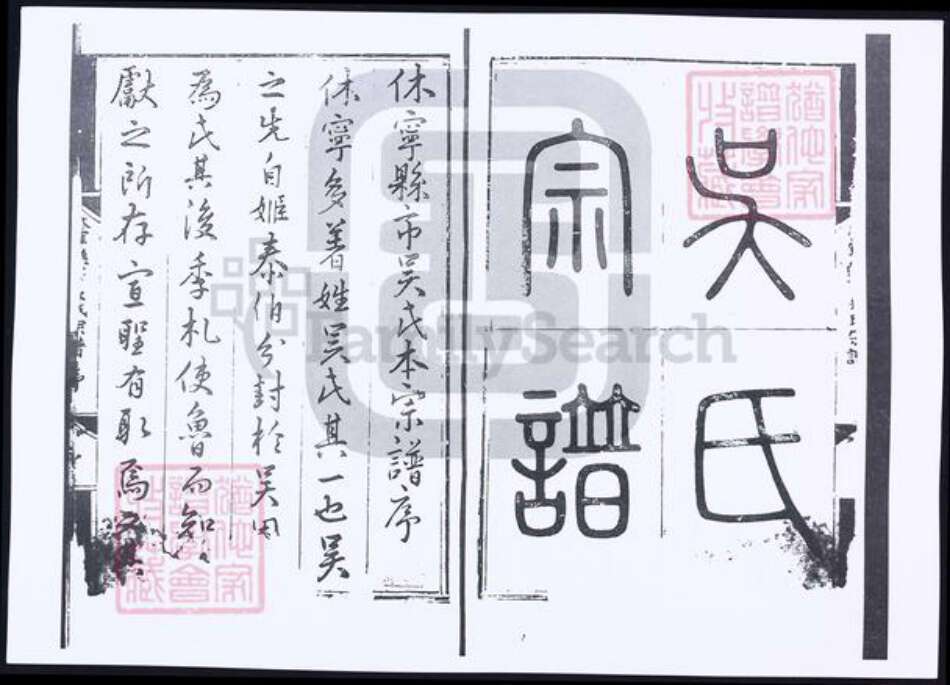 吳氏
宗譜
休寧縣市吳氏本宗譜序
休寧多著姓吳氏其一也吳
之先自姬泰伯分封於吳因
為氏其後季札使魯而知
獻之所存宣聖有取焉
猶他家譜學會收藏
猶他家譜學會收藏
FamilySearch